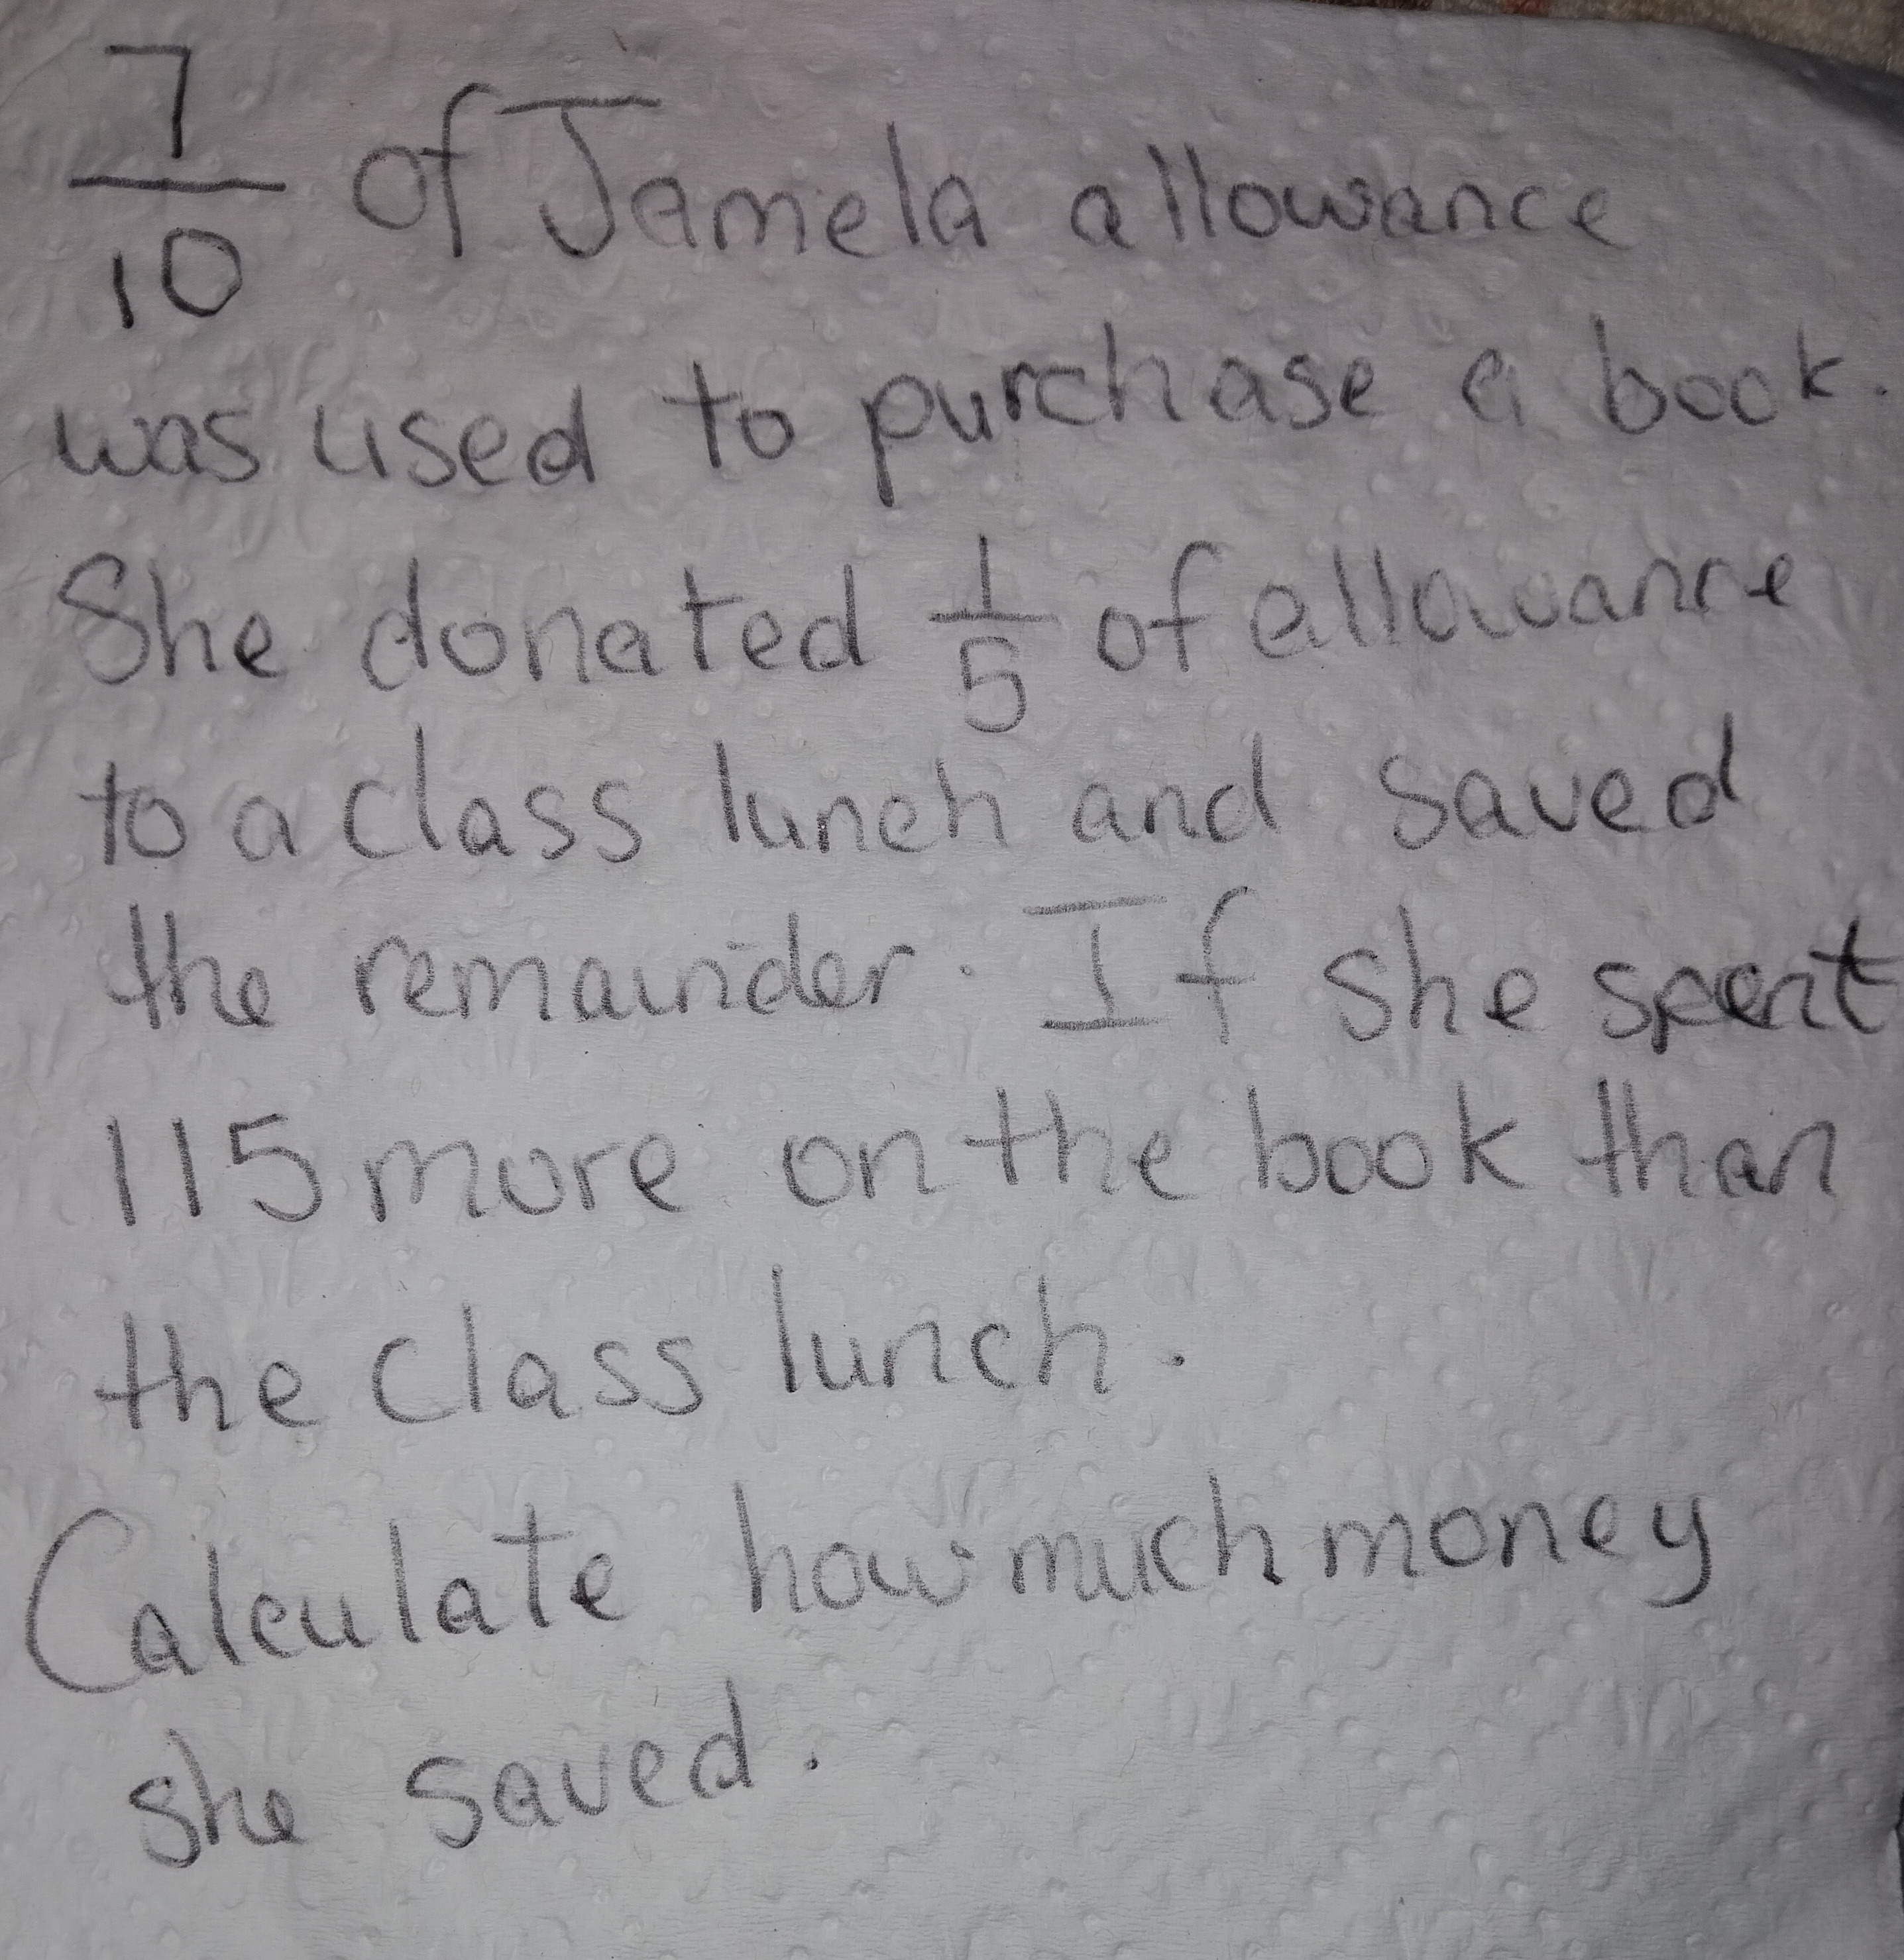 7/10 of Jamela allowance
was used to purchase a book.
She donated 1/5 of allowance
to a class lunch and saved
the remainder. If she spent
115 more on the book than
the class lunch.
Calculate how much money
she saved.